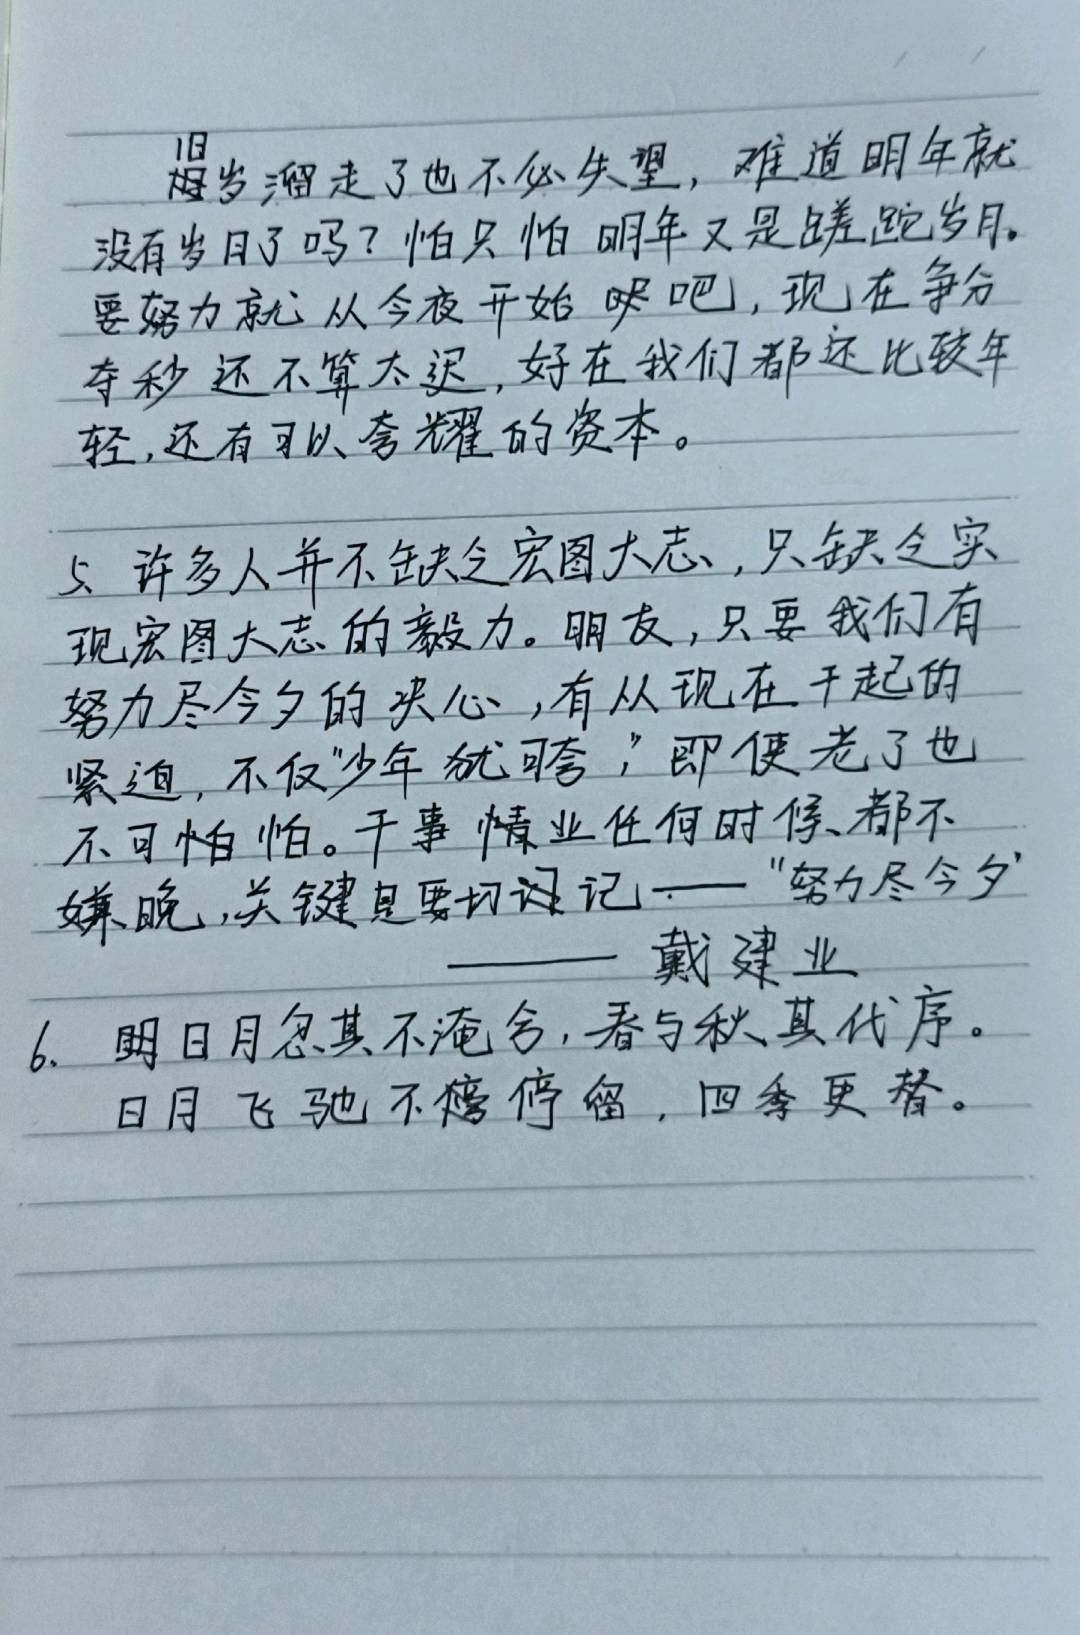 旧岁溜走了也不必失望，难道明年就
没有岁日了吗？怕只怕明年又是蹉跎岁月。
要努力就从今夜开始吧，现在争分
夺秒还不算太迟，好在我们都还比较年
轻，还有可以夸耀的资本。
5、许多人并不缺乏宏图大志，只缺乏实
现宏图大志的毅力。朋友，只要我们有
努力尽今夕的决心，有从现在干起的
紧迫，不仅"少年犹可夸，"即使老了也
不可怕怕。干事情业任何时候、都不
嫌晚，关键是要切记——"努力尽今夕"
——戴建业
6. 明日月忽其不淹兮，春与秋其代序。
日月飞驰不停留，四季更替。